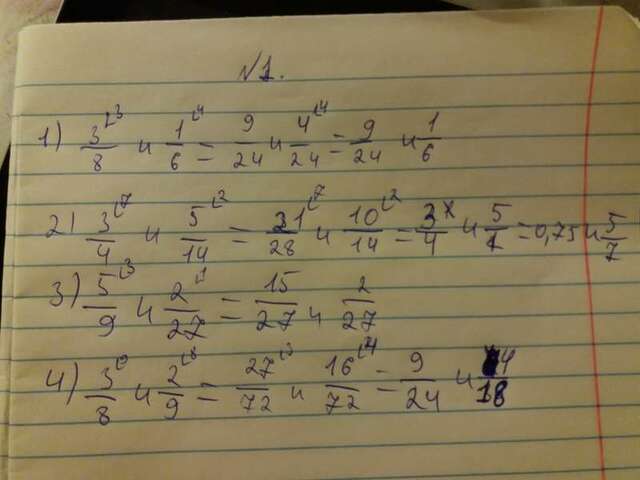 №1.
1) 3/8 ⌊3 и 1/6 ⌊4 = 9/24 и 4/24 ⌊4 = 9/24 и 1/6
2) 3/4 ⌊7 и 5/14 ⌊2 = 21/28 ⌊7 и 10/14 ⌊2 = 3/4 и 5/7 = 0,75 и 5/7
3) 5/9 ⌊3 и 2/27 ⌊1 = 15/27 и 2/27
4) 3/8 и 2/9 ⌊8 = 27/72 ⌊3 и 16/72 ⌊4 = 9/24 и 4/18